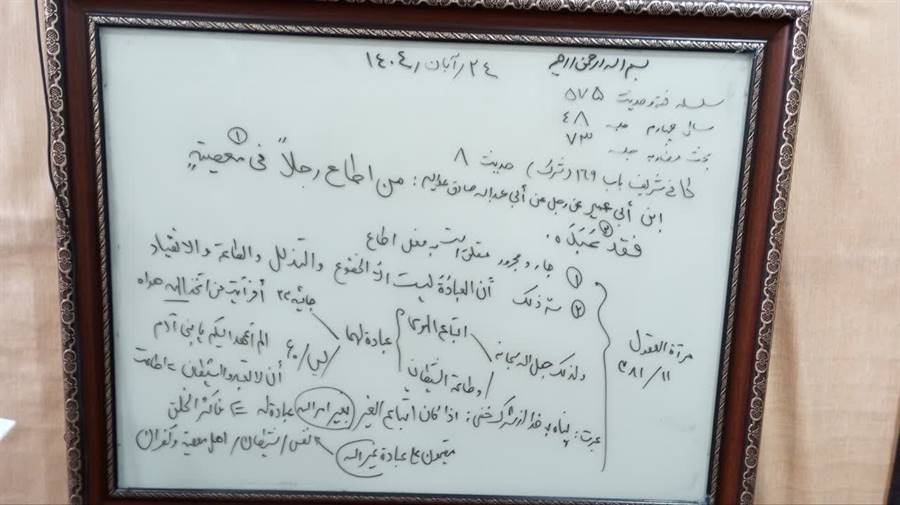 بسم الله الرحمن الرحیم
۲۴/آبان/۱۴۰۴
سلسله فقه و حدیث ۵۷۵
سال چهارم جلسه ۴۸
بحث جلسه ۷۳
کافی شریف باب ۱۶۹ (شرک) حدیث ۸
ابن أبی عمیر عن رجل عن أبی عبدالله صادق علیه: من اطاع رجلاً فی معصیةٍ ①
فقد عَبَدَه. ②
① جار و مجرور متعلق است به فعل اطاع
② سرّ ذلک أن العبادة لیست الا الخضوع والتذلل والطاعة والانقیاد
ولذلک جعل الله سبحانه
اتباع الهوی
وطاعة الشیطان
عبادة لهما
جاثیه ۲۳ أفرأیت من اتخذ الهه هواه
یس/۶۰ الم اعهد الیکم یا بنی آدم
أن لا تعبدوا الشیطان = اطاعت
مرآة العقول
۱۱/
عبرت: پناه به خدا از شرک خفی: اذا کان اتباع الغیر بغیر امر الله عبادة له ⇐ فاکثر الخلق
مقیمون علی عبادة غیر الله
نفس/شیطان/اهل معصیة و کفران